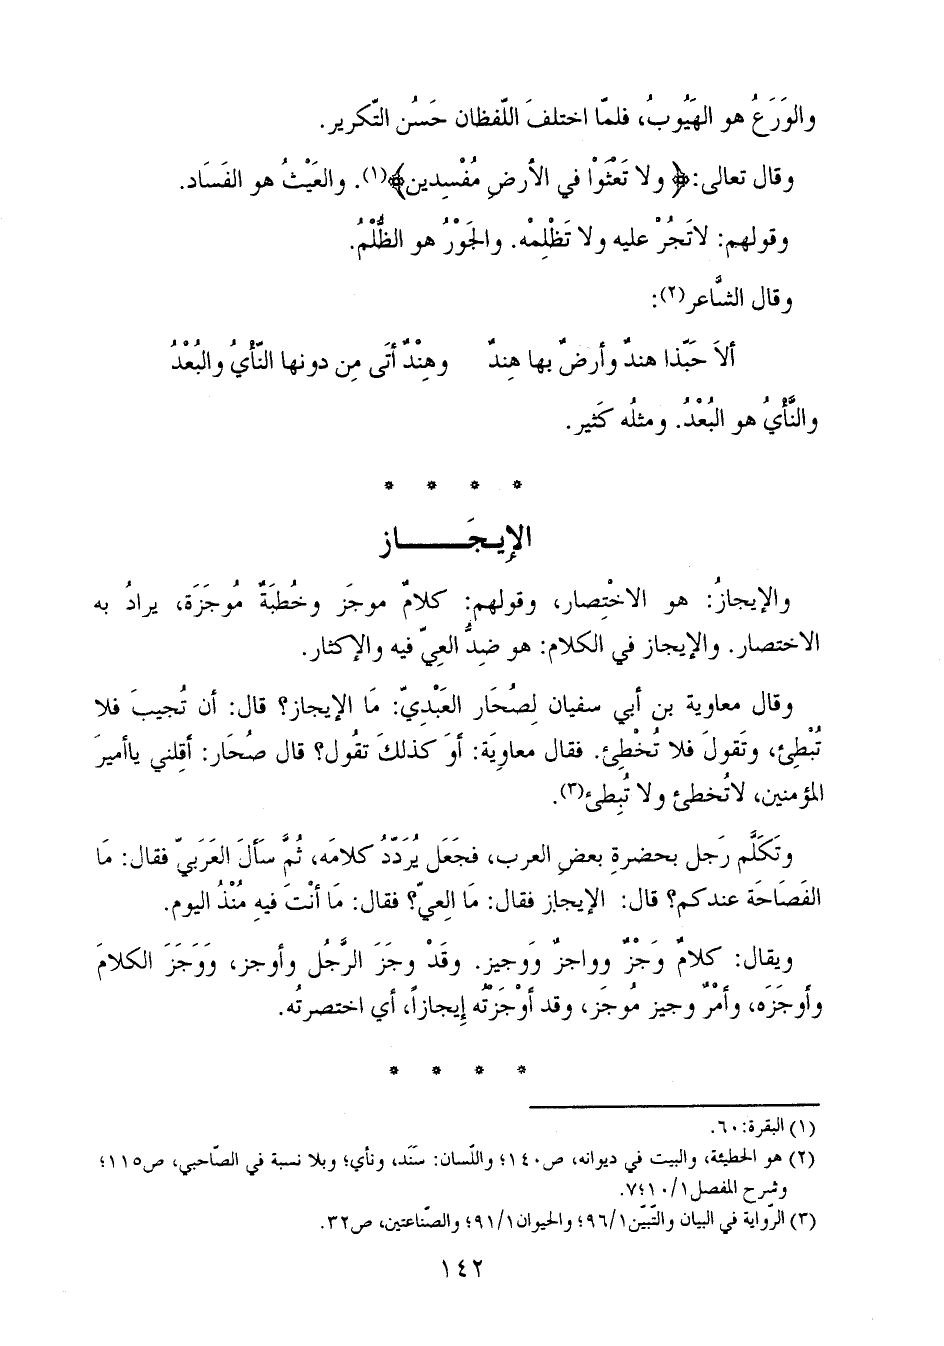 والوَرَعُ هو الهَيُوبُ، فلمّا اختلفَ اللّفظان حَسُن التّكرير.
وقال تعالى: ﴿ ولا تَعْثَوْا في الأرضِ مُفْسِدين﴾(١). والعَيْثُ هو الفَسَاد.
وقولهم: لاتَجُرْ عليه ولا تَظْلِمْه. والجَوْرُ هو الظُّلْمُ.
وقال الشَّاعر(٢):
ألاَ حَبّذا هندٌ وأرضٌ بها هِندٌ     وهِنْدٌ أتَى مِن دونها النّأْيُ والبُعْدُ
والنَّأْيُ هو البُعْدُ. ومثلُه كَثير.
* * * *
الإيـجَــــــاز
والإيجازُ: هو الاخْتِصار، وقولهم: كلامٌ موجَز وخُطبَةٌ مُوجَزَة، يرادُ به
الاختصار. والإيجاز في الكلام: هو ضِدُّ العِيّ فيه والإكثار.
وقال معاوية بن أبي سفيان لِصُحَار العَبْدِيّ: مَا الإيجاز؟ قال: أن تُجيبَ فلا
تُبْطِئ، وتَقولَ فلا تُخْطِئ. فقال معاوِيَة: أوَ كذلكَ تقُول؟ قال صُحَار: أقِلني ياأميرَ
المؤمنين، لاتُخطئ ولا تُبِطئ(٣).
وتَكَلَّم رَجل بحضرةِ بعضِ العرب، فجَعَل يُرَدّدُ كلامَه، ثُمَّ سَألَ العَرَبيّ فقال: مَا
الفَصَاحَة عندكم؟ قال: الإيجاز فقال: مَا العِيّ؟ فقال: مَا أنْتَ فيهِ مُنْذُ اليوم.
ويقال: كلامٌ وَجْزٌ وواجزٌ ووَجيز. وقَدْ وجَزَ الرَّجُل وأوجز، ووَجَزَ الكلامَ
وأوجَزَه، وأمْرٌ وجيز مُوجَز، وقد أوْجَزْتُه إيجازاً، أي اختصرتُه.
* * * *
(١) البقرة: ٦٠.
(٢) هو الحطيئة، والبيت في ديوانه، ص١٤٠؛ واللّسان: سَنَد، ونأي؛ وبلا نسبة في الصّاحبي، ص١١٥؛
وشرح المفصل ١/ ١٠؛ ٧.
(٣) الرّواية في البيان والتّبيّن ١/ ٩٦؛ والحيوان ١/ ٩١؛ والصّناعتين، ص٣٢.
١٤٢